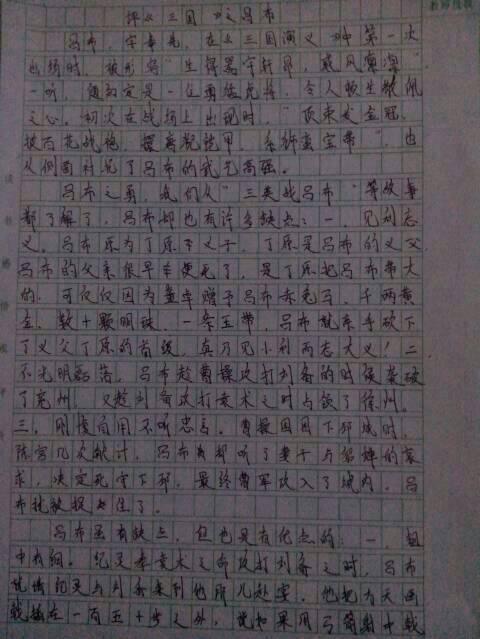 评《三国》之吕布
吕布，字奉先，在《三国演义》中第一次
出场时，被形容“生得器宇轩昂，威风凛凛”
一听，便知定是一位勇猛虎将，令人顿生敬佩
之心。初次在战场上出现时，“顶束发金冠，
披百花战袍，擐唐猊铠甲，系狮蛮宝带”，也
从侧面衬托了吕布的武艺高强。
吕布之勇，我们从“三英战吕布”等故事
都了解了，吕布却也有许多缺点：一，见利忘
义。吕布原为丁原下义子，丁原是吕布的义父，
吕布的父亲很早便死了，是丁原把吕布带大
的，可仅仅因为董卓赠予吕布赤兔马，千两黄
金，数十颗明珠，一条玉带，吕布就亲手砍下
了义父丁原的首级，真乃见小利而忘大义！二
不光明磊落，吕布趁曹操攻打刘备的时候袭破
了兖州，又趁刘备攻打袁术之时占领了徐州。
三，刚愎自用不听忠言。曹操围困下邳城时，
陈宫几次献计，吕布却听了妻子与貂蝉的哀
求，决定死守下邳，最终曹军攻入了城内，吕
布就被捉住了。
吕布虽有缺点，但也是有优点的：一，粗
中有细。纪灵奉袁术之命攻打刘备之时，吕布
纪灵与刘备来到他那儿赴宴，他把方天画
戟插在一百五十步之外，说如果用弓箭射中戟